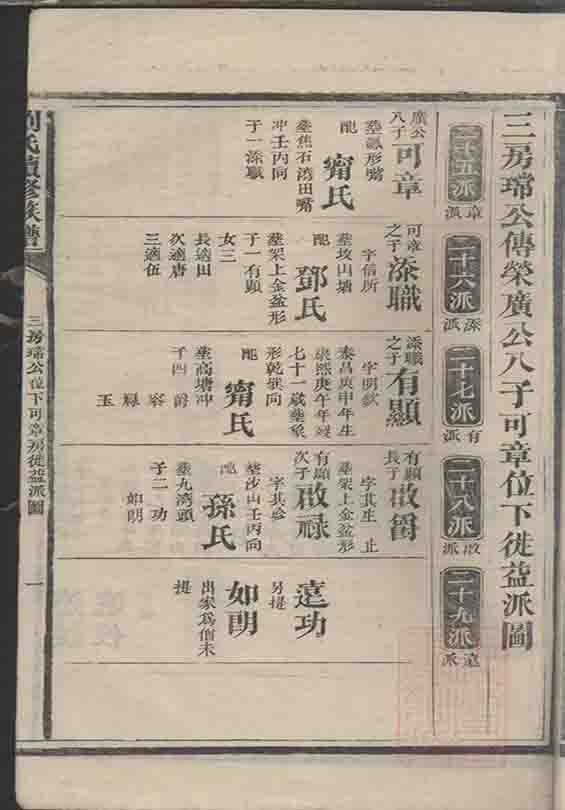 三房瑺公傳榮廣公八子可章位下徙益派圖
二十五派
章派
二十六派
添派
二十七派
有派
二十八派
啟派
二十九派
遠派
廣公八子
可章
墓瓢形嘴
配
甯氏
墓焦石湾田嘴
冲壬丙向
子一添職
可章之子
添職
字信所
墓坟山塘
配
鄧氏
墓架上金盆形
子一有顯
女三
長適田
次適唐
三適伍
添職之子
有顯
字明欽
泰昌庚申年生
康熙庚午年歿
七十一歲墓象
形乾巽向
配
甯氏
墓高塘冲
子四
爵
容
祿
玉
有顯長子
啟爵
字其生 止
墓架上金盆形
有顯次子
啟祿
字其
墓沙山壬丙向
配
孫氏
墓九湾頭
子二 功
如朗
遠功
另提
如朗
出家爲僧未
提
劉氏續修族譜
三房瑺公位下可章房徙益派圖
一